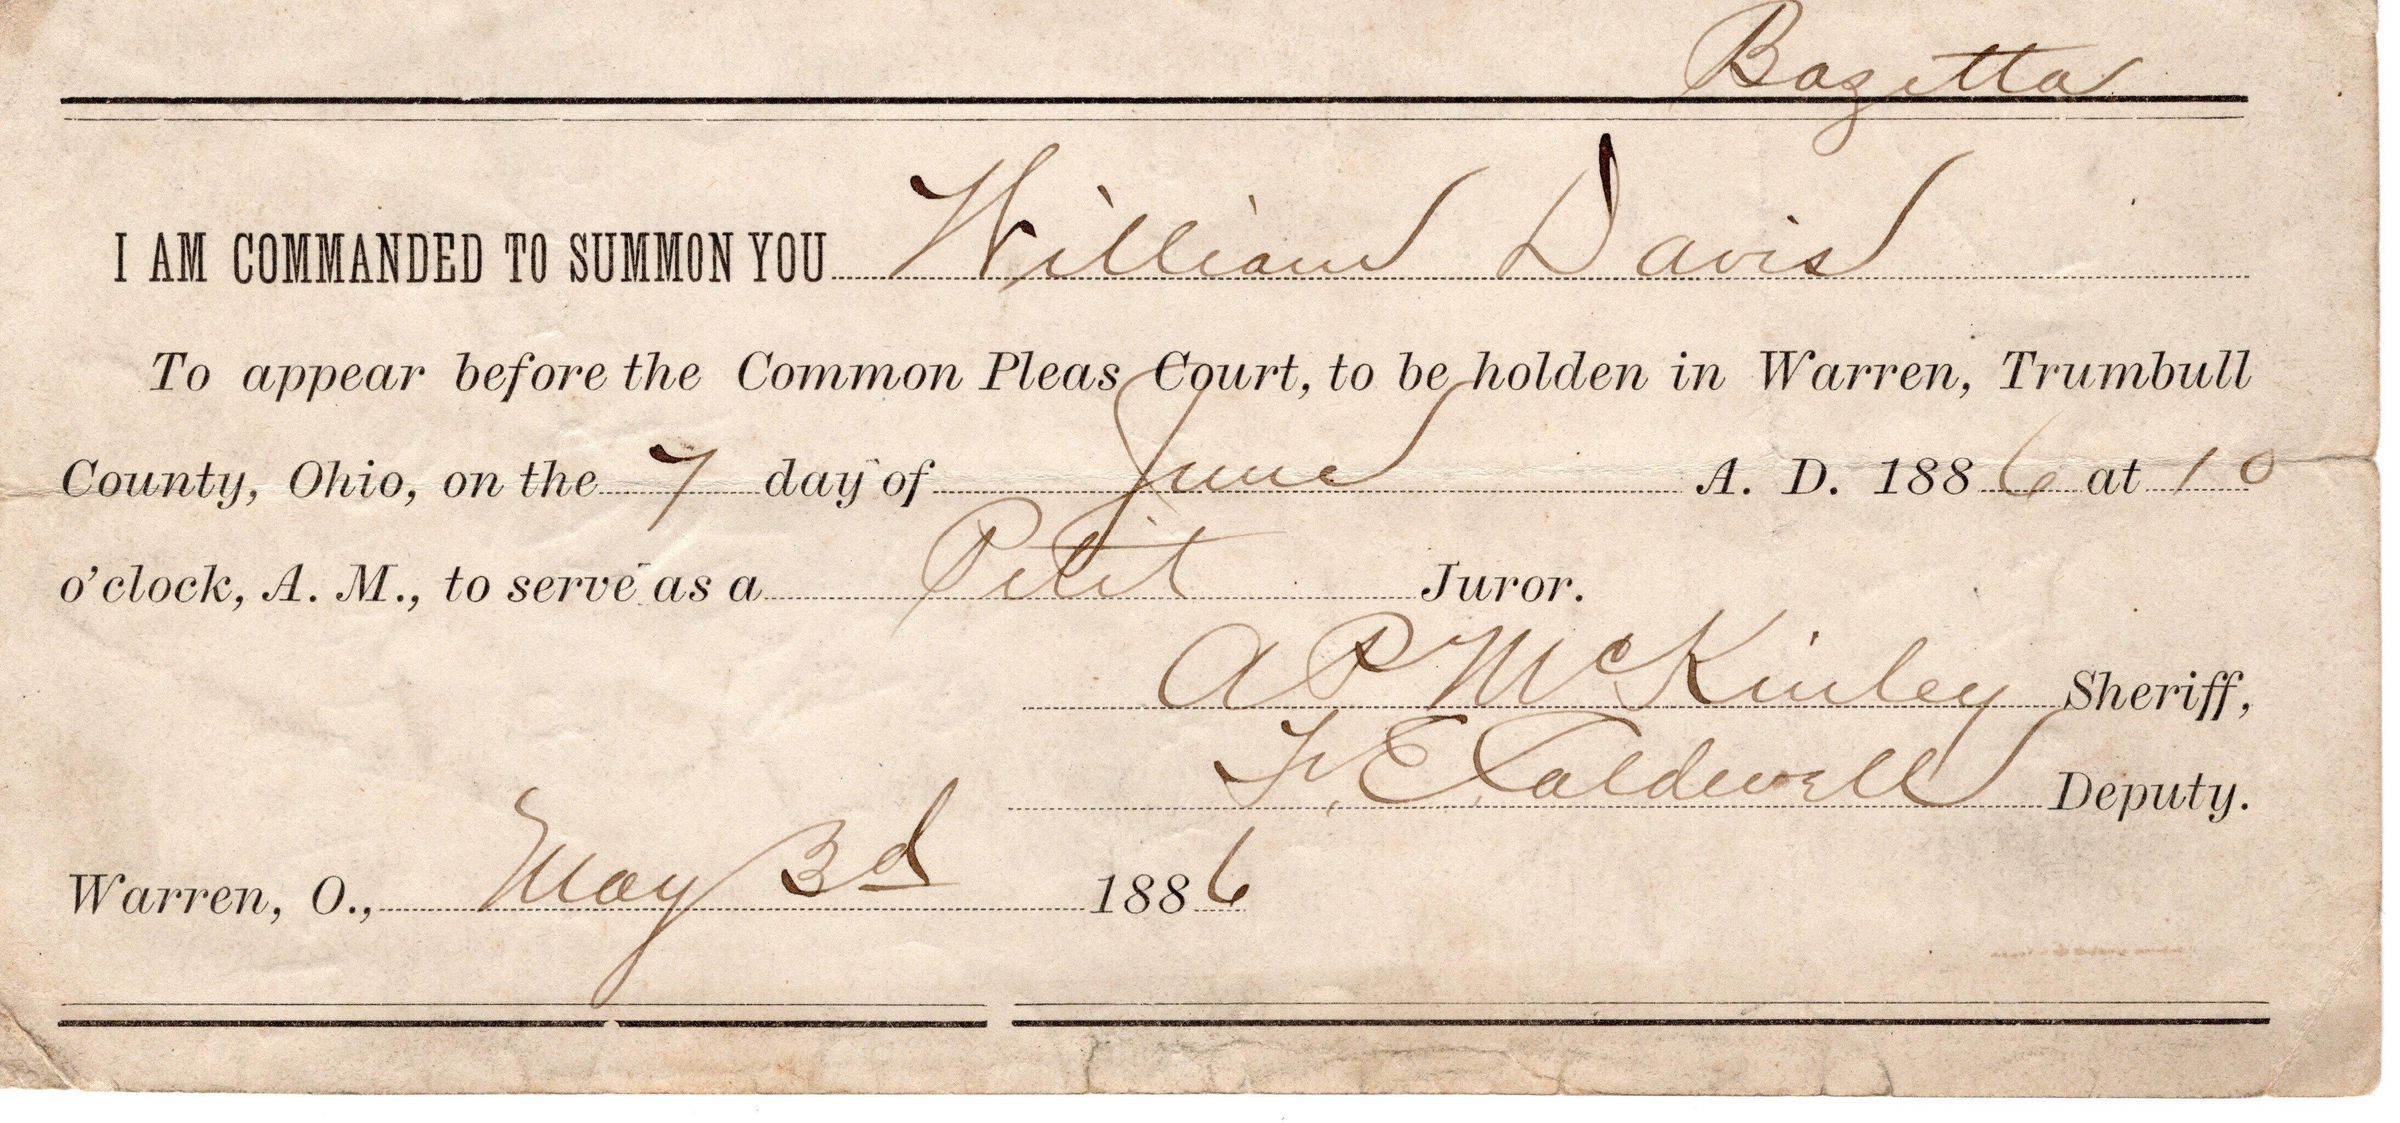 Bazetta
I AM COMMANDED TO SUMMON YOU William Davis
To appear before the Common Pleas Court, to be holden in Warren, Trumbull
County, Ohio, on the 7 day of June A. D. 1886 at 10
o'clock, A. M., to serve as a Petit Juror.
A P McKinley Sheriff,
F. E. Caldwell Deputy.
Warren, O., May 3d 1886